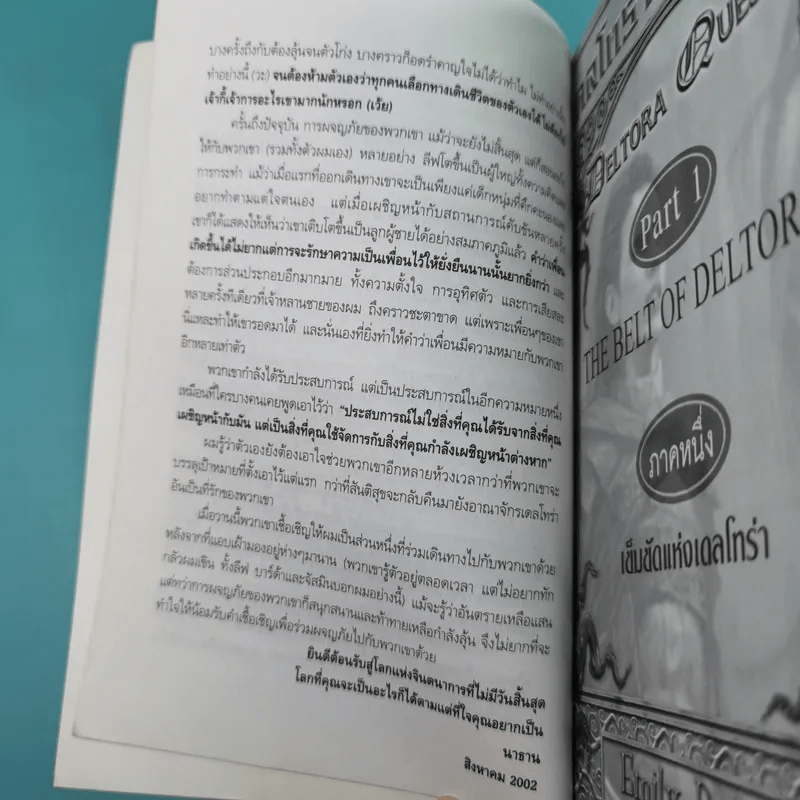 บางครั้งถึงกับต้องลุ้นจนตัวโก่ง บางคราวก็อดรำคาญใจไม่ได้ว่าทำไม ไม่ทำอย่างนั้น
ทำอย่างนี้ (วะ) จนต้องห้ามตัวเองว่าทุกคนเลือกทางเดินชีวิตของตัวเองได้
เจ้ากี้เจ้าการอะไรเขามากนักหรอก (เว้ย)
ครั้นถึงปัจจุบัน การผจญภัยของพวกเขา แม้ว่าจะยังไม่สิ้นสุด
ให้กับพวกเขา (รวมทั้งตัวผมเอง) หลายอย่าง ลีฟโตขึ้นเป็นผู้ใหญ่ทั้งความคิดและ
การกระทำ แม้ว่าเมื่อแรกที่ออกเดินทางเขาจะเป็นเพียงแค่เด็กหนุ่มที่คึกคะนองและ
อยากทำตามแต่ใจตนเอง แต่เมื่อเผชิญหน้ากับสถานการณ์คับขันหลายครั้ง
เขาก็ได้แสดงให้เห็นว่าเขาเติบโตขึ้นเป็นลูกผู้ชายได้อย่างสมภาคภูมิแล้ว คำว่าเพื่อน
เกิดขึ้นได้ไม่ยากแต่การจะรักษาความเป็นเพื่อนไว้ให้ยั่งยืนนานนั้นยากยิ่งกว่า และ
ต้องการส่วนประกอบอีกมากมาย ทั้งความตั้งใจ การอุทิศตัว และการเสียสละ
หลายครั้งทีเดียวที่เจ้าหลานชายของผม ถึงคราวชะตาขาด แต่เพราะเพื่อนๆของเขา
นี่แหละทำให้เขารอดมาได้ และนั่นเองที่ยิ่งทำให้คำว่าเพื่อนมีความหมายกับพวกเขา
อีกหลายเท่าตัว
พวกเขากำลังได้รับประสบการณ์ แต่เป็นประสบการณ์ในอีกความหมายหนึ่ง
เหมือนที่ใครบางคนเคยพูดเอาไว้ว่า "ประสบการณ์ไม่ใช่สิ่งที่คุณได้รับจากสิ่งที่คุณ
เผชิญหน้ากับมัน แต่เป็นสิ่งที่คุณใช้จัดการกับสิ่งที่คุณกำลังเผชิญหน้าต่างหาก"
ผมรู้ว่าตัวเองยังต้องเอาใจช่วยพวกเขาอีกหลายห้วงเวลากว่าที่พวกเขาจะ
บรรลุเป้าหมายที่ตั้งเอาไว้แต่แรก กว่าที่สันติสุขจะกลับคืนมายังอาณาจักรเดลโทร่า
อันเป็นที่รักของพวกเขา
เมื่อวานนี้พวกเขาเชื้อเชิญให้ผมเป็นส่วนหนึ่งที่ร่วมเดินทางไปกับพวกเขาด้วย
หลังจากที่แอบเฝ้ามองอยู่ห่างๆมานาน (พวกเขารู้ตัวอยู่ตลอดเวลา แต่ไม่อยากทัก
กลัวผมเขิน ทั้งลีฟ บาร์ด้าและจัสมินบอกผมอย่างนี้) แม้จะรู้ว่าอันตรายเหลือแสน
แต่ทว่าการผจญภัยของพวกเขาก็สนุกสนานและท้าทายเหลือกำลังลุ้น จึงไม่ยากที่จะ
ทำใจให้น้อมรับคำเชื้อเชิญเพื่อร่วมผจญภัยไปกับพวกเขาด้วย
ยินดีต้อนรับสู่โลกแห่งจินตนาการที่ไม่มีวันสิ้นสุด
โลกที่คุณจะเป็นอะไรก็ได้ตามแต่ที่ใจคุณอยากเป็น
นาธาน
สิงหาคม 2002
DELTORA QUE
Part 1
THE BELT OF DELTOR
ภาคหนึ่ง
เข็มขัดแห่งเดลโทร่า
Emily